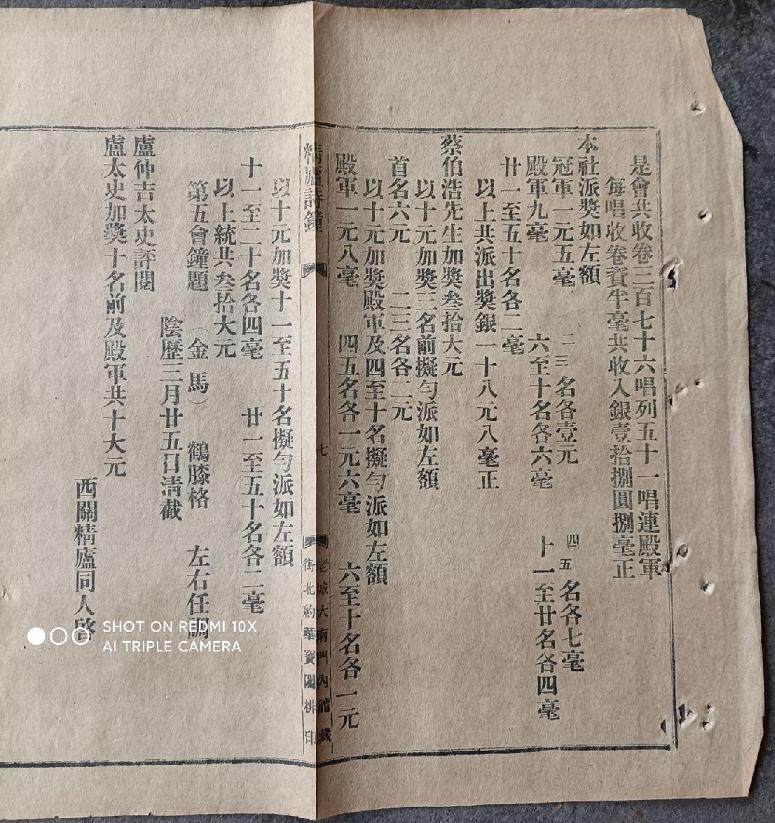 是會共收卷三百七十六唱列五十一唱連殿軍
每唱收卷資半毫共收入銀壹拾捌圓捌毫正
本社派獎如左額
冠軍一元五毫 二三名各壹元 四五名各七毫
殿軍九毫 六至十名各六毫 十一至廿名各四毫
廿一至五十名各二毫
以上共派出獎銀一十八元八毫正
蔡伯浩先生加獎叁拾大元
以十元加獎三名前擬勻派如左額
首名六元 二三名各二元
以十元加獎殿軍及四至十名擬勻派如左額
殿軍一元八毫 四五名各一元六毫 六至十名各一元
精廬詩鐘 七
老城大南門內
街北約華寶閣排印
以十元加獎十一至五十名擬勻派如左額
十一至二十名各四毫 廿一至五十名各二毫
以上統共叁拾大元
第五會鐘題 (金馬) 鶴膝格 左右任
陰歷三月廿五日清截
盧仲吉太史評閱
盧太史加獎十名前及殿軍共十大元
西關精廬同人啓
SHOT ON REDMI 10X
AI TRIPLE CAMERA